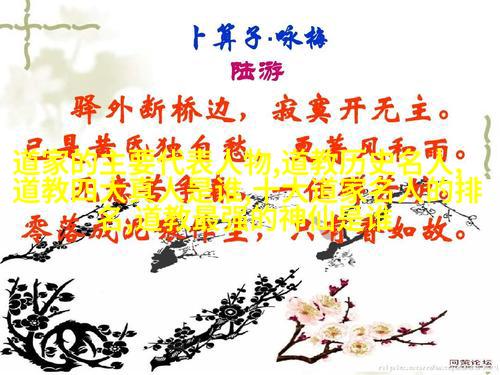 卜算子·咏梅
陆游
驿外断桥边，寂寞开无主。
已是黄昏独自愁，更著风和雨。
道家的主要代表人物,道教历史名人,
道教四大真人是谁,十大道家名人的排
名,道教最强的神仙是谁
零落成泥碾作尘，只有香如故。